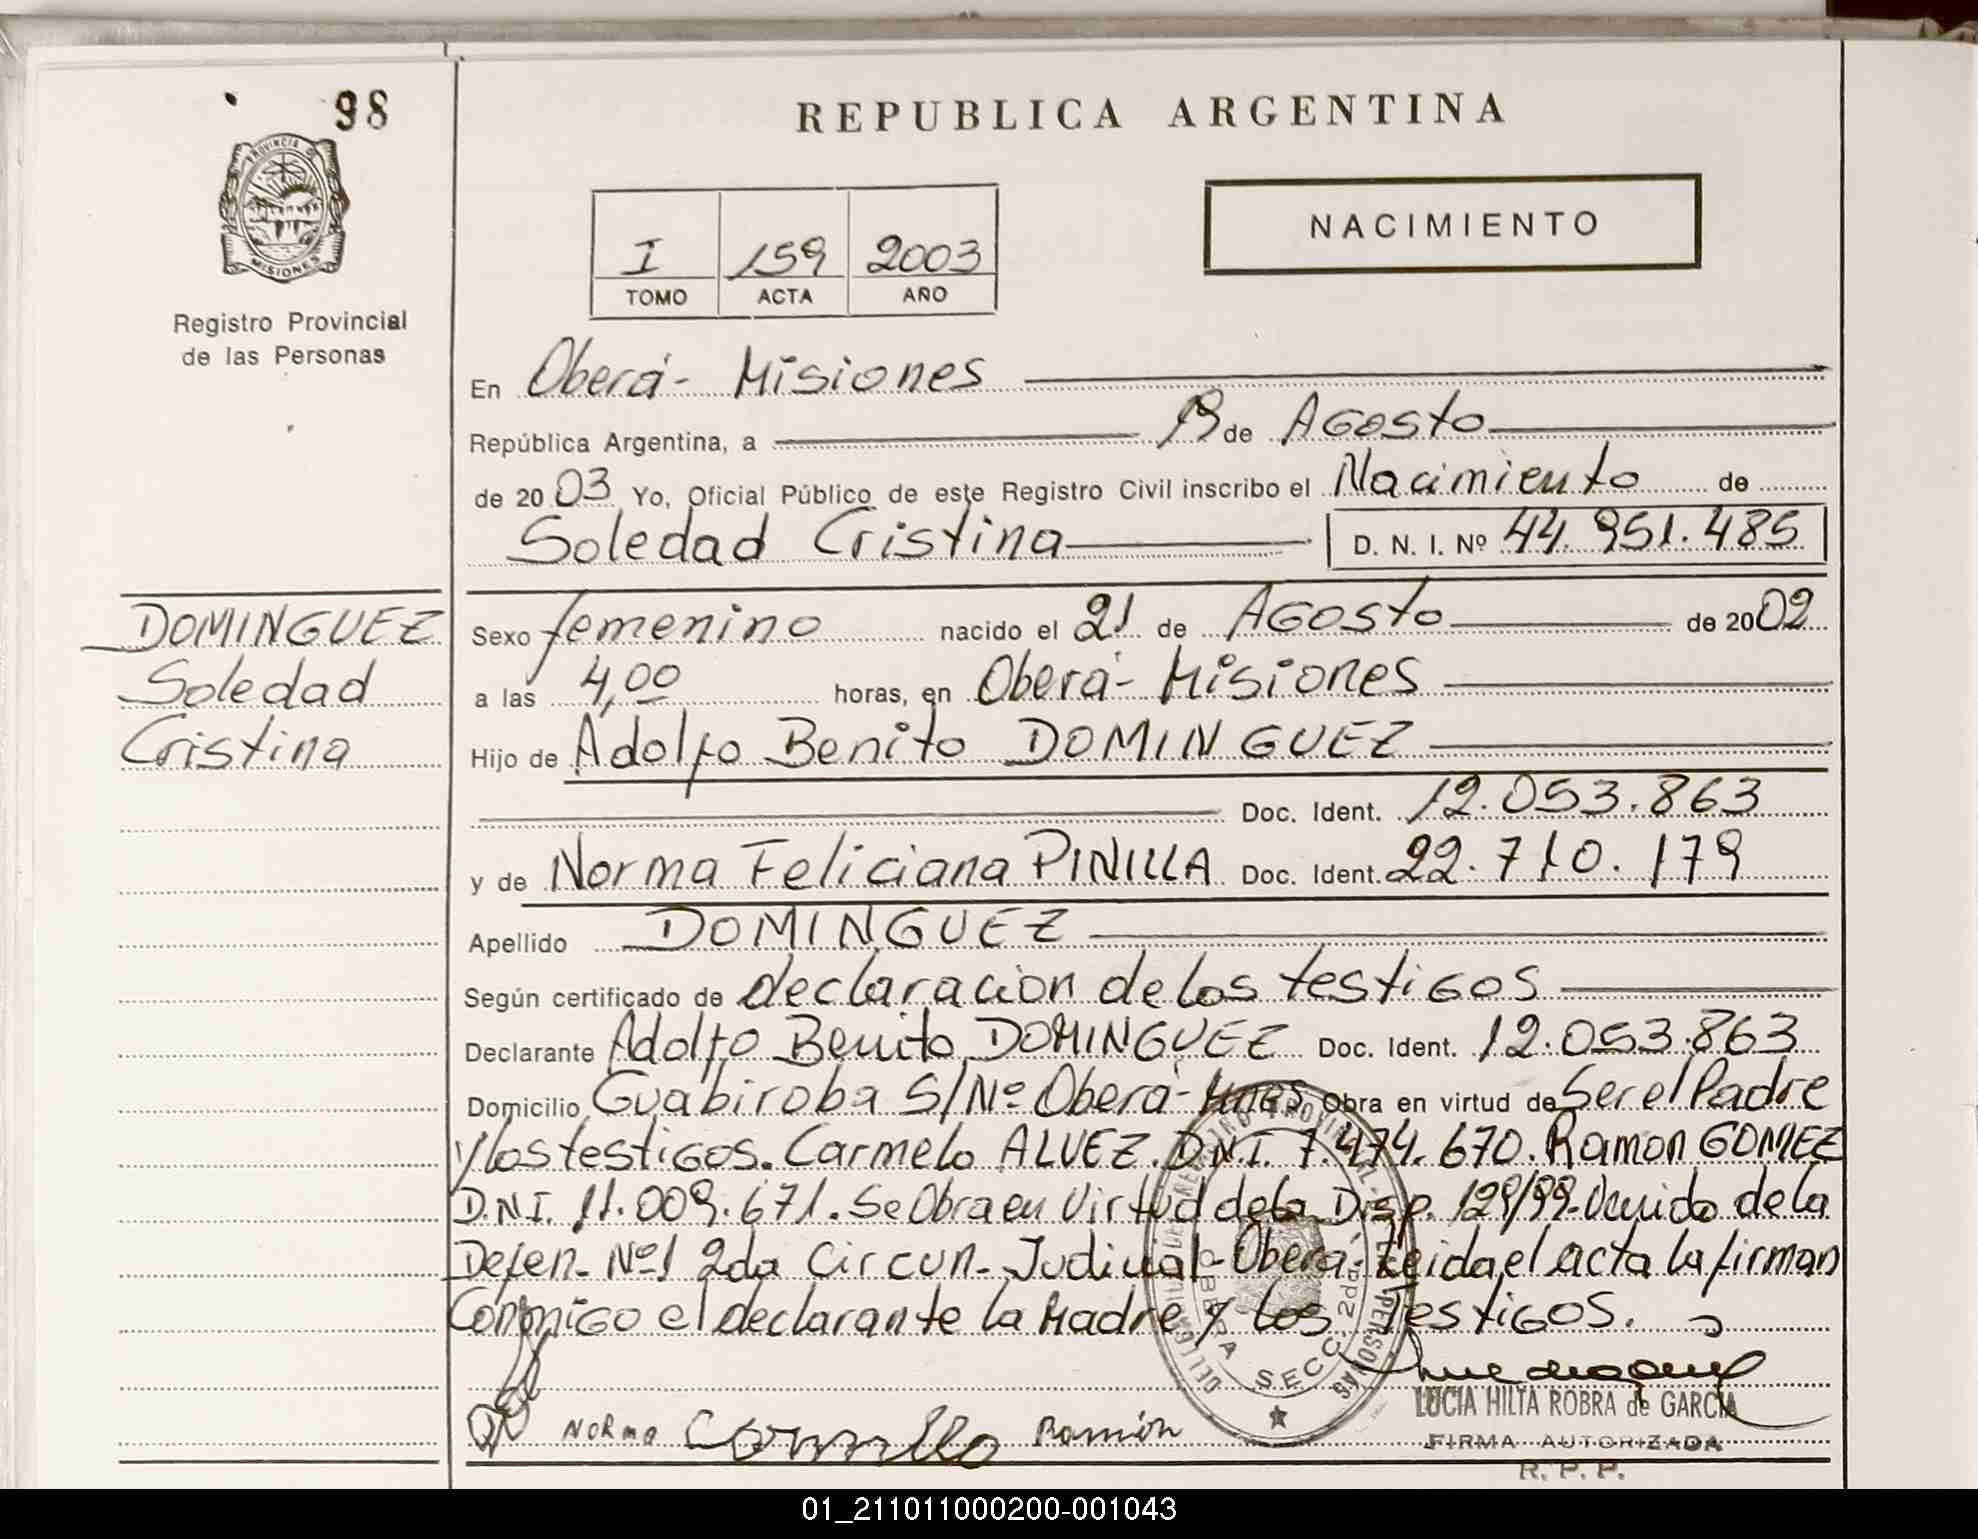 98
REPUBLICA ARGENTINA
PROVINCIA D
MISIONES
Registro Provincial
de las Personas
I 159 2003
TOMO ACTA AÑO
NACIMIENTO
En Oberá - Misiones
República Argentina, a 19 de Agosto
de 2003 Yo, Oficial Público de este Registro Civil inscribo el Nacimiento de
Soledad Cristina D. N. I. Nº 44.951.485
DOMINGUEZ
Soledad
Cristina
Sexo femenino nacido el 21 de Agosto de 2002
a las 4,00 horas, en Oberá - Misiones
Hijo de Adolfo Benito DOMINGUEZ
Doc. Ident. 12.053.863
y de Norma Feliciana PINILLA Doc. Ident. 22.710.179
Apellido DOMINGUEZ
Según certificado de declaracion de los testigos
Declarante Adolfo Benito DOMINGUEZ Doc. Ident. 12.053.863
Domicilio Guabiroba S/Nº Oberá - Mnes Obra en virtud de Ser el Padre
y los testigos. Carmelo ALVEZ. D.N.I. 7.474.670. Ramon GOMEZ
D.N.I. 11.009.671. Se Obra en Virtud de la Disp. 129/99. de la
Defen. Nº1 2da Circun. Judicial - Oberá. Leida el acta la firman
Conmigo el declarante la Madre y los Testigos.
OBERA SECC. 2da
NORMA Ramón
LUCIA HILTA ROBRA de GARCIA
FIRMA AUTORIZADA
R. P. P.
01_211011000200-001043